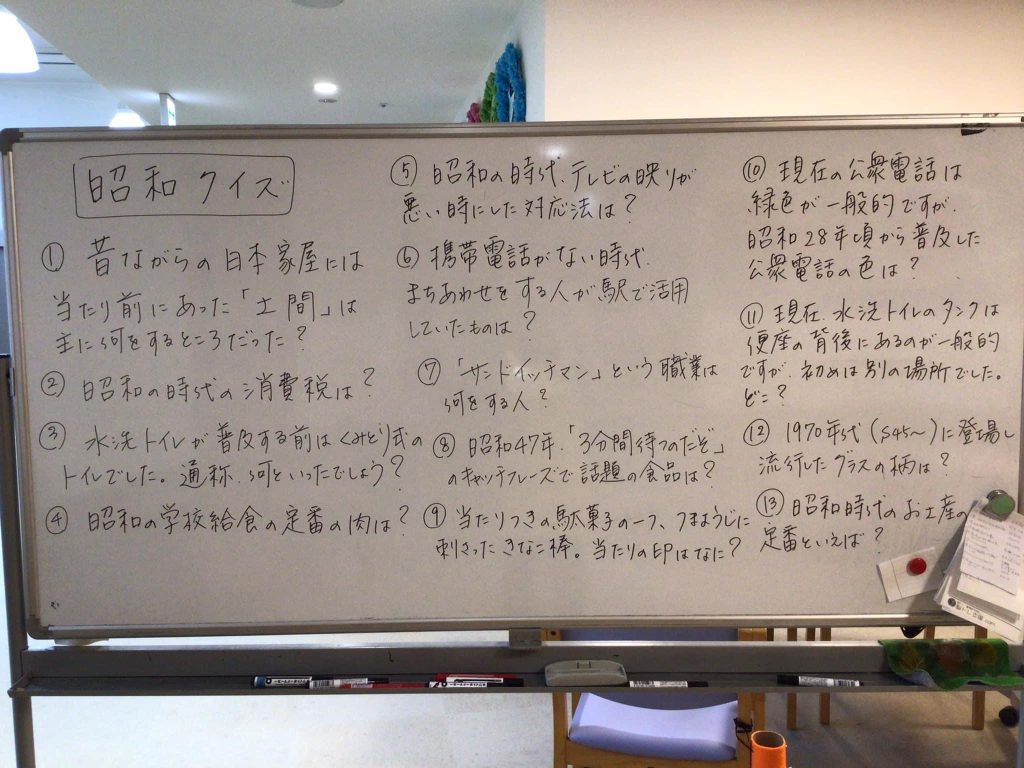 昭和クイズ
① 昔ながらの日本家屋には
当たり前にあった「土間」は
主に何をするところだった?
② 昭和の時代の消費税は?
③ 水洗トイレが普及する前はくみとり式の
トイレでした。通称、何といったでしょう?
④ 昭和の学校給食の定番の肉は?
⑤ 昭和の時代、テレビの映りが
悪い時にした対応法は?
⑥ 携帯電話がない時代、
まちあわせをする人が駅で活用
していたものは?
⑦ 「サンドイッチマン」という職業は
何をする人?
⑧ 昭和47年、「3分間待つのだぞ」
のキャッチフレーズで話題の食品は?
⑨ 当たりつきの駄菓子の一つ、つまようじに
刺さったきなこ棒。当たりの印はなに?
⑩ 現在の公衆電話は
緑色が一般的ですが、
昭和28年頃から普及した
公衆電話の色は?
⑪ 現在、水洗トイレのタンクは
便座の背後にあるのが一般的
ですが、初めは別の場所でした。
どこ?
⑫ 1970年代(S45~)に登場し
流行したグラスの柄は?
⑬ 昭和時代のお土産の
定番といえば?